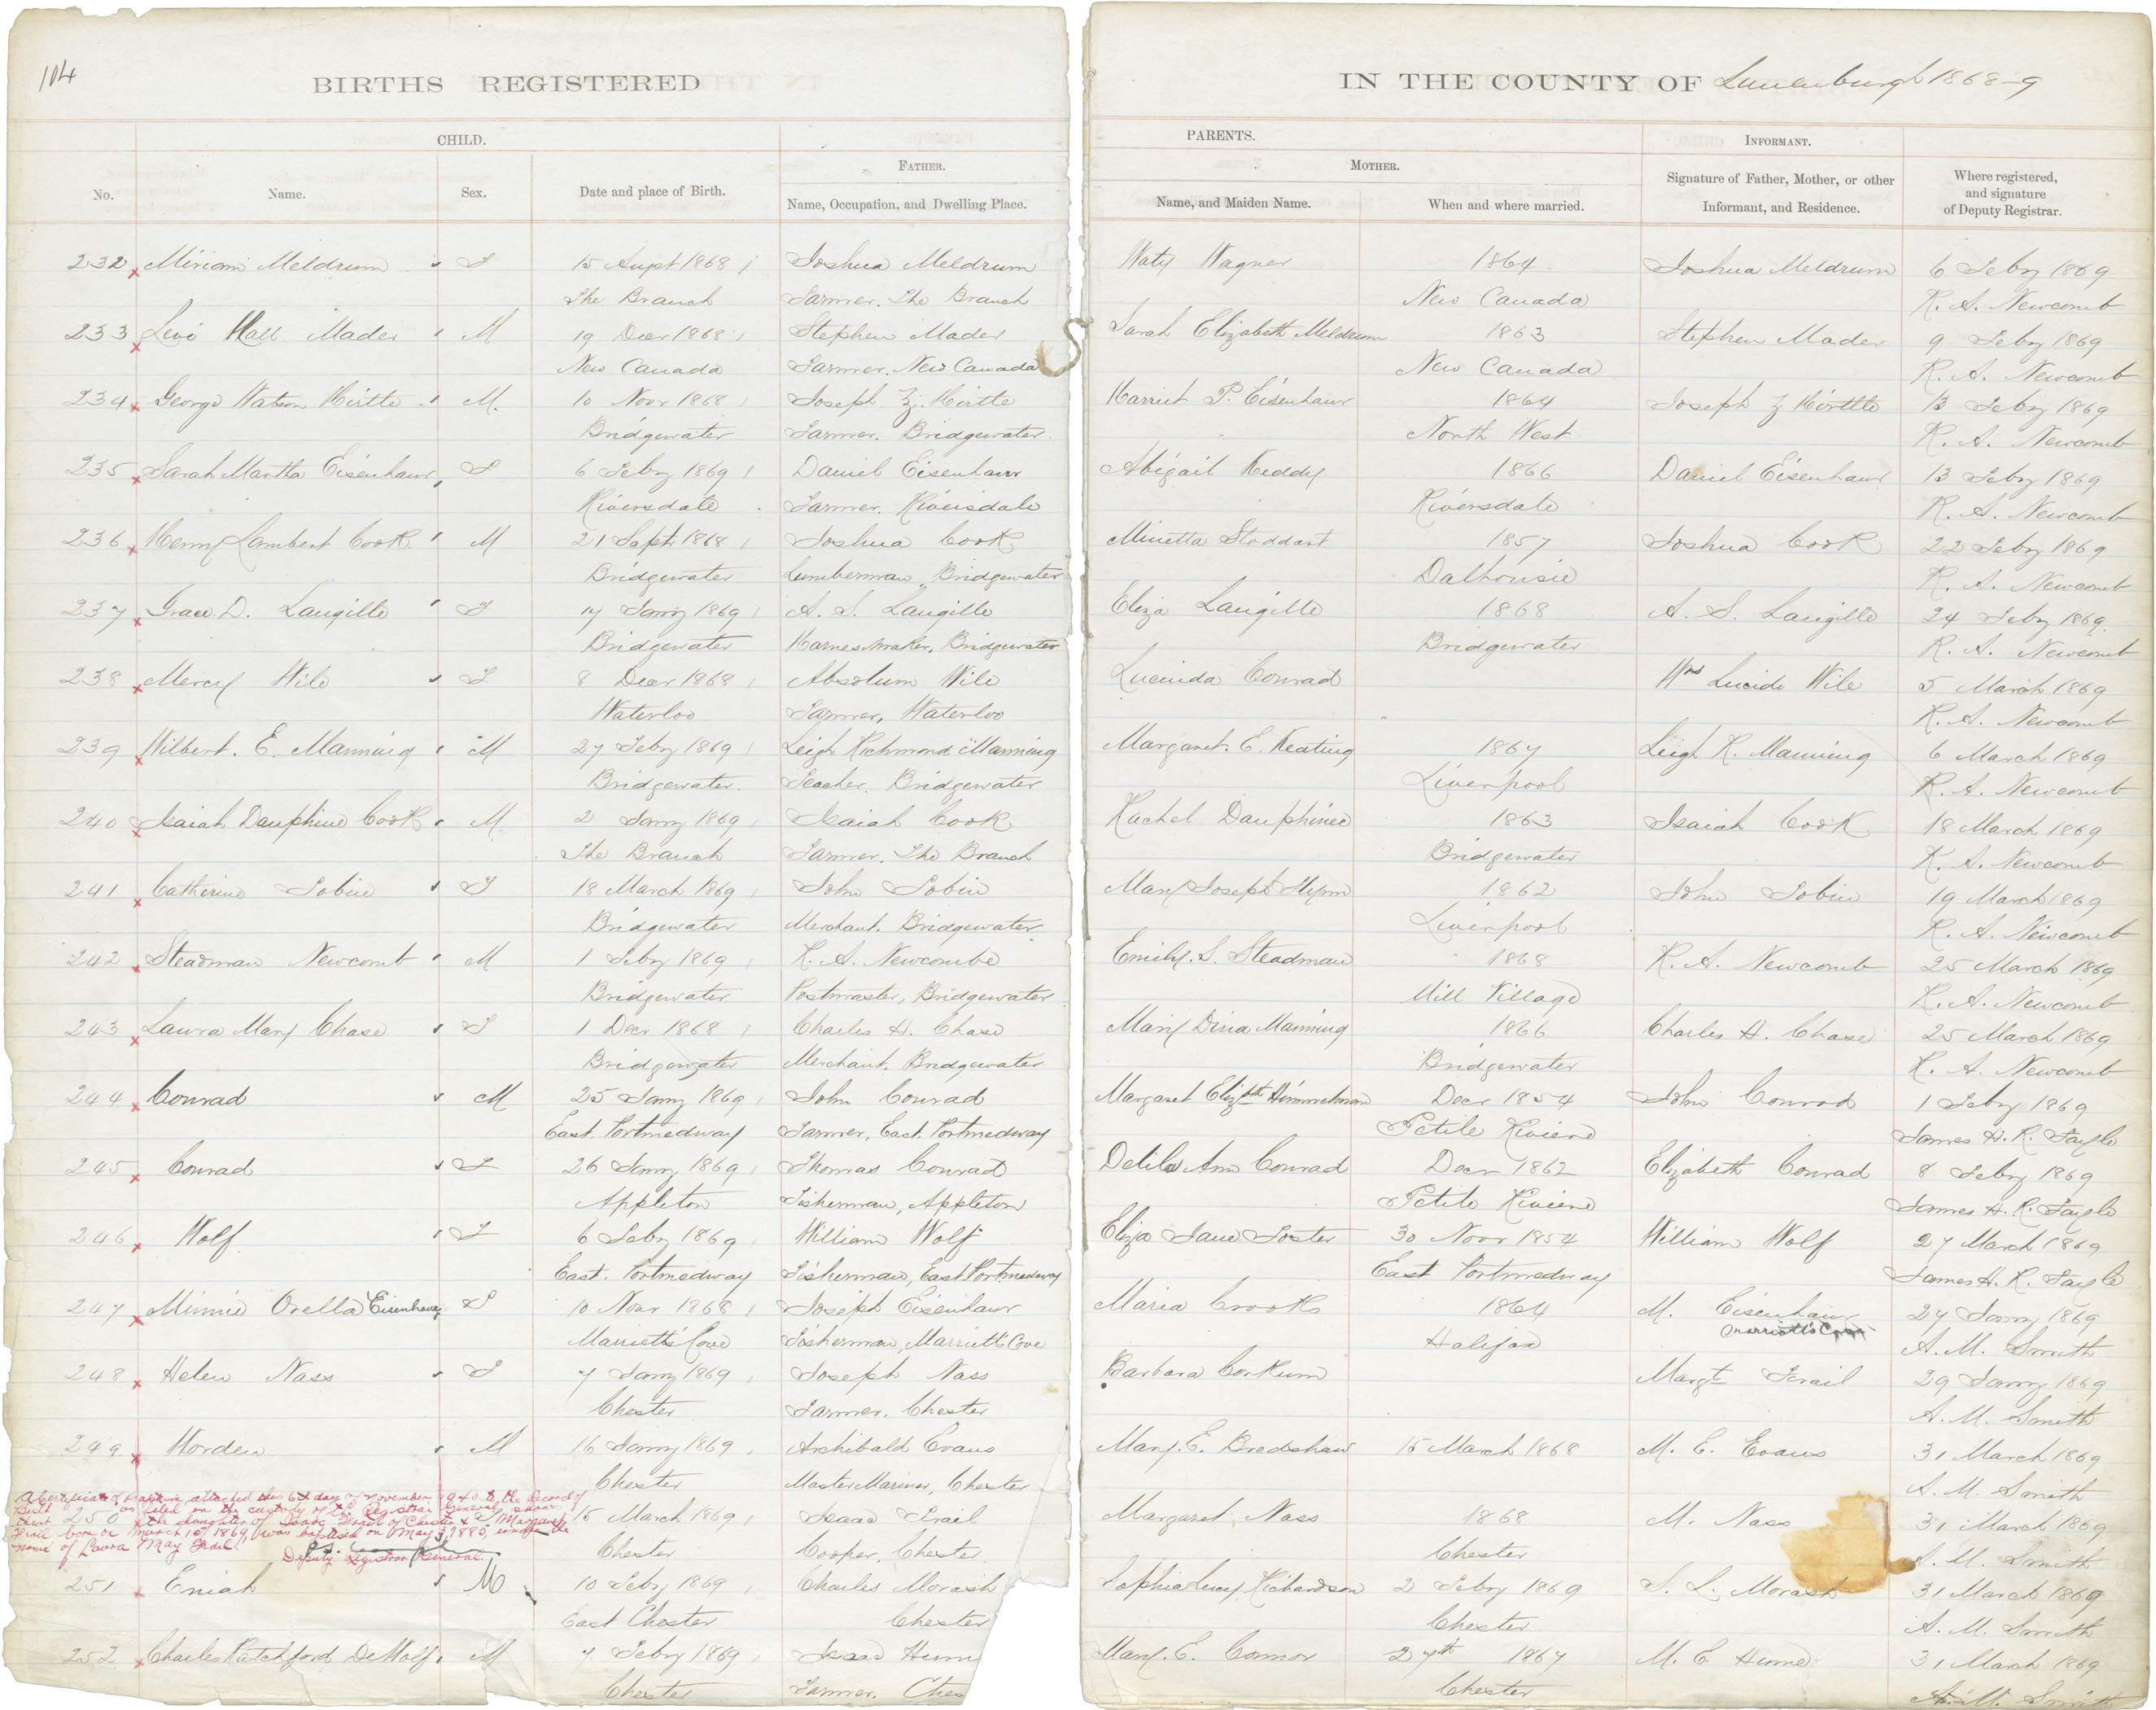 104
BIRTHS REGISTERED
IN THE COUNTY OF Lunenburgh 1868-9
CHILD.
PARENTS.
INFORMANT.
FATHER.
MOTHER.
No.
Name.
Sex.
Date and place of Birth.
Name, Occupation, and Dwelling Place.
Name, and Maiden Name.
When and where married.
Signature of Father, Mother, or other
Informant, and Residence.
Where registered,
and signature
of Deputy Registrar.
232 Miriam Meldrum F 15 Augst 1868 Joshua Meldrum Waty Wagner 1864 Joshua Meldrum 6 Feby 1869
The Branch Farmer. The Branch New Canada R. A. Newcomb
233 Levi Hall Mader M 19 Decr 1868 Stephen Mader Sarah Elizabeth Meldrum 1863 Stephen Mader 9 Feby 1869
New Canada Farmer. New Canada New Canada R. A. Newcomb
234 George Watson Hirtle M. 10 Novr 1868 Joseph Z. Hirtle Harriet P. Eisenhaur 1864 Joseph Z Hirttle 13 Feby 1869
Bridgewater Farmer. Bridgewater North West R. A. Newcomb
235 Sarah Martha Eisenhaur F 6 Feby 1869 Daniel Eisenhaur Abigail Keddy 1866 Daniel Eisenhaur 13 Feby 1869
Riversdale Farmer. Riversdale Riversdale R. A. Newcomb
236 Henry Lambert Cook M 21 Septr 1868 Joshua Cook Minetta Stoddart 1857 Joshua Cook 22 Feby 1869
Bridgewater Lumberman, Bridgewater Dalhousie R. A. Newcomb
237 Grace. D. Langille F 17 Janry 1869 A. S. Langille Eliza Langille 1868 A. S. Langille 24 Feby 1869
Bridgewater Harnesmaker, Bridgewater Bridgewater R. A. Newcomb
238 Mercy Wile F 8 Decr 1868 Absolum Wile Lucinda Conrad Mrs Lucinda Wile 5 March 1869
Waterloo Farmer, Waterloo R. A. Newcomb
239 Wilbert. E. Manning M 27 Feby 1869 Leigh Richmond Manning Margaret. E. Keating 1867 Leigh R. Manning 6 March 1869
Bridgewater. Teacher. Bridgewater Liverpool R. A. Newcomb
240 Isaiah Dauphine Cook M. 2 Janry 1869 Isaiah Cook Rachel Dauphinee 1863 Isaiah Cook 18 March 1869
The Branch Farmer. The Branch Bridgewater R. A. Newcomb
241 Catherine Tobin F 18 March 1869 John Tobin Mary Joseph Flynn 1862 John Tobin 19 March 1869
Bridgewater Merchant. Bridgewater Liverpool R. A. Newcomb
242 Steadman Newcomb M 1 Feby 1869 R. A. Newcombe Emily. S. Steadman 1868 R. A. Newcomb 25 March 1869
Bridgewater Postmaster, Bridgewater Mill Village R. A. Newcomb
243 Laura Mary Chase F 1 Decr 1868 Charles H. Chase Mary Diria Manning 1866 Charles H. Chase 25 March 1869
Bridgewater Merchant. Bridgewater Bridgewater R. A. Newcomb
244 Conrad M 25 Janry 1869 John Conrad Margaret Elizbth Himmelman Decr 1854 John Conrad 1 Feby 1869
East. Portmedway Farmer, East. Portmedway Petite Riviere James H. R. Fayle
245 Conrad F 26 Janry 1869 Thomas Conrad Delila Ann Conrad Decr 1862 Elizabeth Conrad 8 Feby 1869
Appleton Fisherman, Appleton Petite Riviere James H. R. Fayle
246 Wolf F 6 Feby 1869 William Wolf Eliza Jane Foster 30 Novr 1854 William Wolf 27 March 1869
East. Portmedway Fisherman, East Portmedway East Portmedway James H. R. Fayle
247 Minnie Orella Eisenhaur F 10 Novr 1868 Joseph Eisenhaur Maria Crooks 1864 M. Eisenhaur 27 Janry 1869
Marriett's Cove Fisherman, Marriett's Cove Halifax Marriott's Cove A. M. Smith
248 Helen Nass F 7 Janry 1869 Joseph Nass Barbara Corkum Margt Frail 29 Janry 1869
Chester Farmer. Chester A. M. Smith
249 Horden M 16 Janry 1869 Archibald Evans Mary. E. Bredshaw 15 March 1868 M. E. Evans 31 March 1869
Chester Master Mariner, Chester A. M. Smith
A Certificate of Baptism attached this 6th day of November 1940 to the Record of
Birth 250 as filed in the custody of the Registrar General, shows
that the daughter of Isaac Frail of Chester & Margaret
Frail born on March 15th 1869, was baptised on May 3, 1885, under the
name of Laura May Frail.
Deputy Registrar General.
250 F 15 March 1869 Isaac Frail Margaret Nass 1868 M. Nass 31 March 1869
Chester Cooper, Chester Chester A. M. Smith
251 Eniah M 10 Feby 1869 Charles Morash Sophia Lucy Richardson 2 Feby 1869 S. L. Morash 31 March 1869
East Chester Chester Chester A. M. Smith
252 Charles Ratchford DeWolf M 7 Feby 1869 Isaac Hum Mary. E. Connor 27th 1867 M. E Hume 31 March 1869
Chester Farmer. Ches Chester A. M. Smith